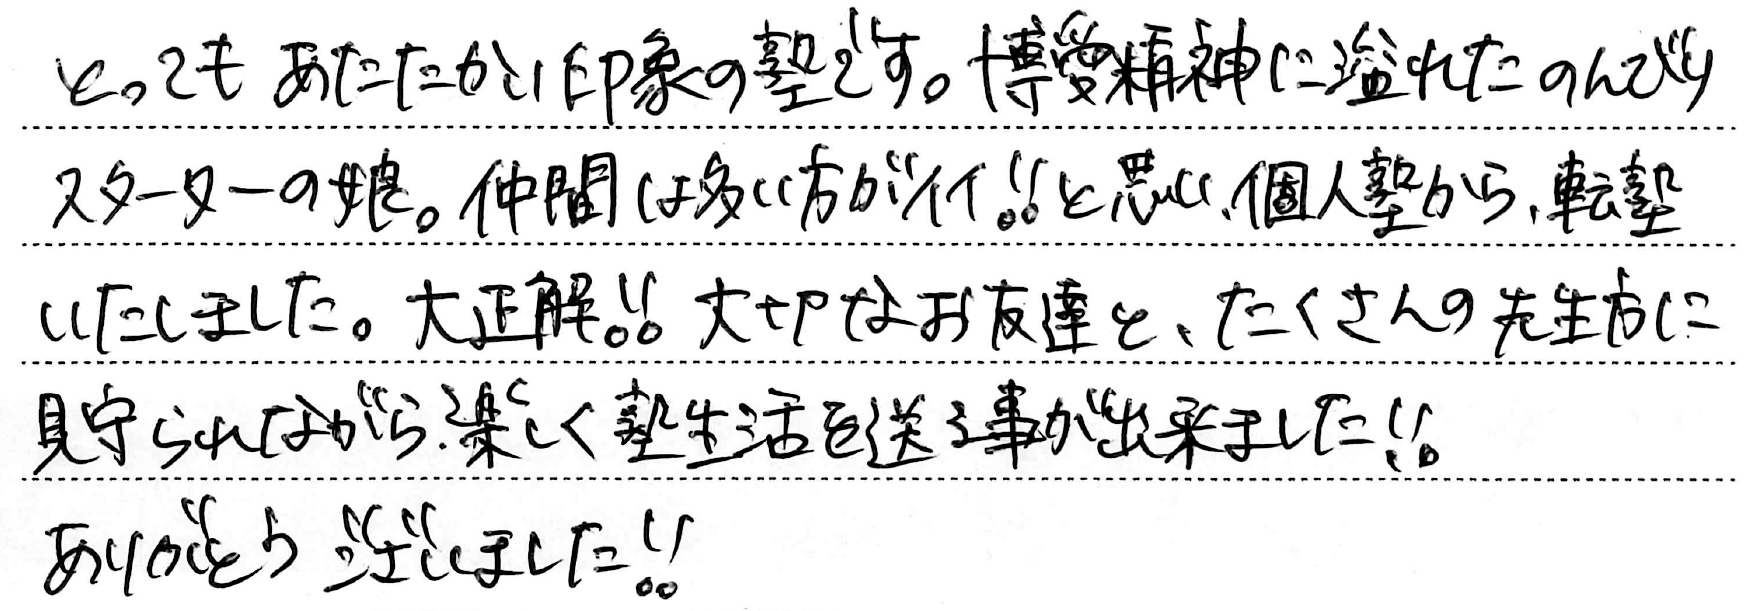 とってもあたたかい印象の塾です。博愛精神に溢れたのんびり
スターターの娘。仲間は多い方がイイ!!と思い、個人塾から、転塾
いたしました。大正解!! 大切なお友達と、たくさんの先生方に
見守られながら、楽しく塾生活を送る事が出来ました!!
ありがとうございました!!